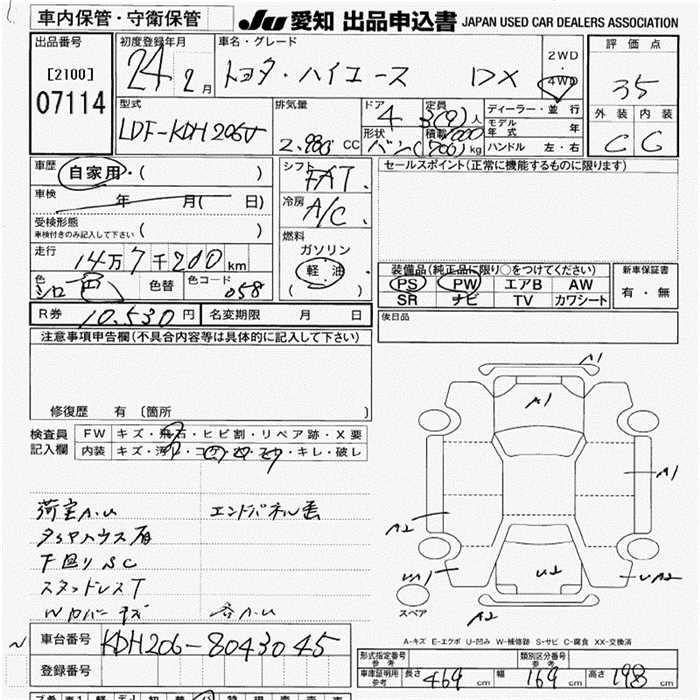 車内保管・守衛保管
JU 愛知 出品申込書 JAPAN USED CAR DEALERS ASSOCIATION
出品番号
[2100]
07114
初度登録年月
24 2月
車名・グレード
トヨタ・ハイエース DX
2WD
・
4WD
評価点
3.5
外装 内装
C C
型式
LDF-KDH206V
排気量
2.980 CC
ドア
4
形状
バン
定員
3(9)人
積載
1000
(700)kg
ディーラー・並行
モデル年式 年
ハンドル 左・右
車歴
自家用・( )
車検 年 月( 日)
受検形態
車検付きのみ記入して下さい ( )
走行
14万7千200km
色
シロ 色
色替
色コード
058
シフト
FAT
冷房
A/C
燃料
ガソリン
軽油
( )
セールスポイント(正常に機能するものに限ります)
装備品(純正品に限り○をつけてください)
PS PW エアB AW
SR ナビ TV カワシート
新車保証書
有・無
後日品
R券 10.530円 名変期限 月 日
注意事項申告欄(不具合内容等は具体的に記入して下さい)
修復歴 有 〔箇所 〕
検査員
記入欄
FW キズ・飛石・ヒビ割・リペア跡・X要
内装 キズ・汚レ・コゲ・・キレ・破レ
荷室A.U エンドパネル
タイヤハウス
下回りSC
スタッドレスT
A1
A1
A1
A2
U2
A2
スペア
A2
A-キズ E-エクボ U-凹み W-補修跡 S-サビ C-腐食 XX-交換済
車台番号 KDH206-8043045
登録番号
形式指定番号
参考
類別区分番号
参考
車庫証明用
参考
長さ 469 cm 幅 169 cm 高さ 198 cm